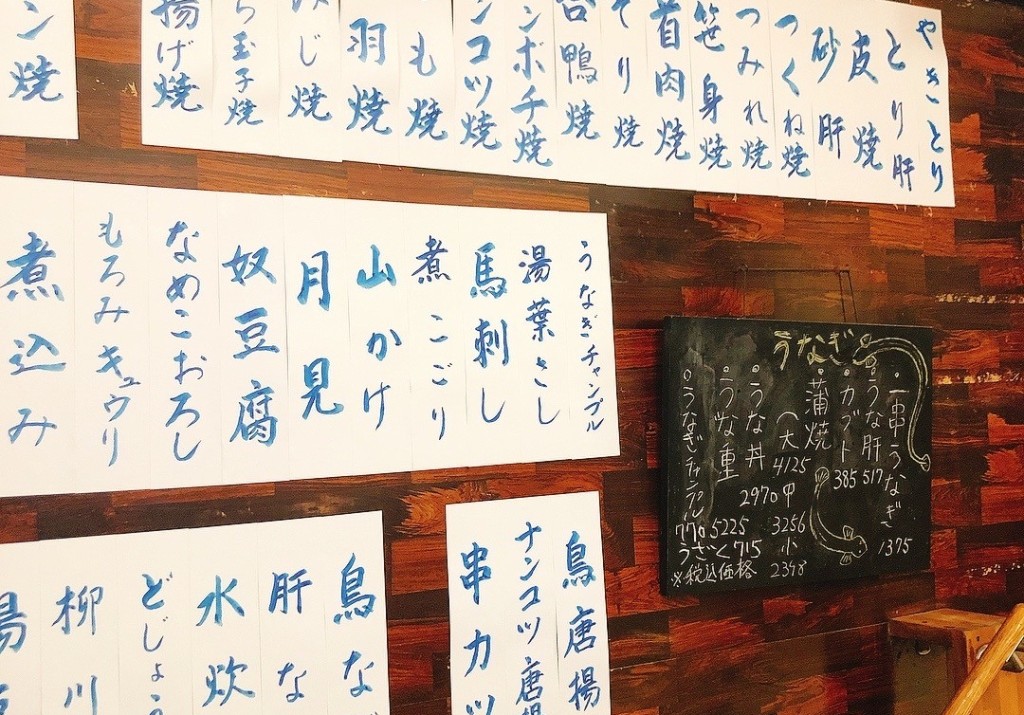 やきとり
とり肝
皮焼
砂肝
つくね焼
つみれ焼
笹身焼
首肉焼
そり焼
合鴨焼
ボンボチ焼
ナンコツ焼
もも焼
手羽焼
焼
玉子焼
揚げ焼
ン焼
うなぎチャンプル
湯葉さし
馬刺し
煮こごり
山かけ
月見
奴豆腐
なめこおろし
もろみキュウリ
煮込み
うなぎ
・一串うなぎ 1375
・うな肝 517
・カブト 385
・蒲焼
(大 4125
中 3256
小 2398
・うな丼 2970
・うな重 5225
・うなぎチャンプル 770
うざく 715
※税込価格
鳥唐揚
ナンコツ唐揚
串カツ
鳥な
肝な
水炊
どじょう
柳川
湯豆